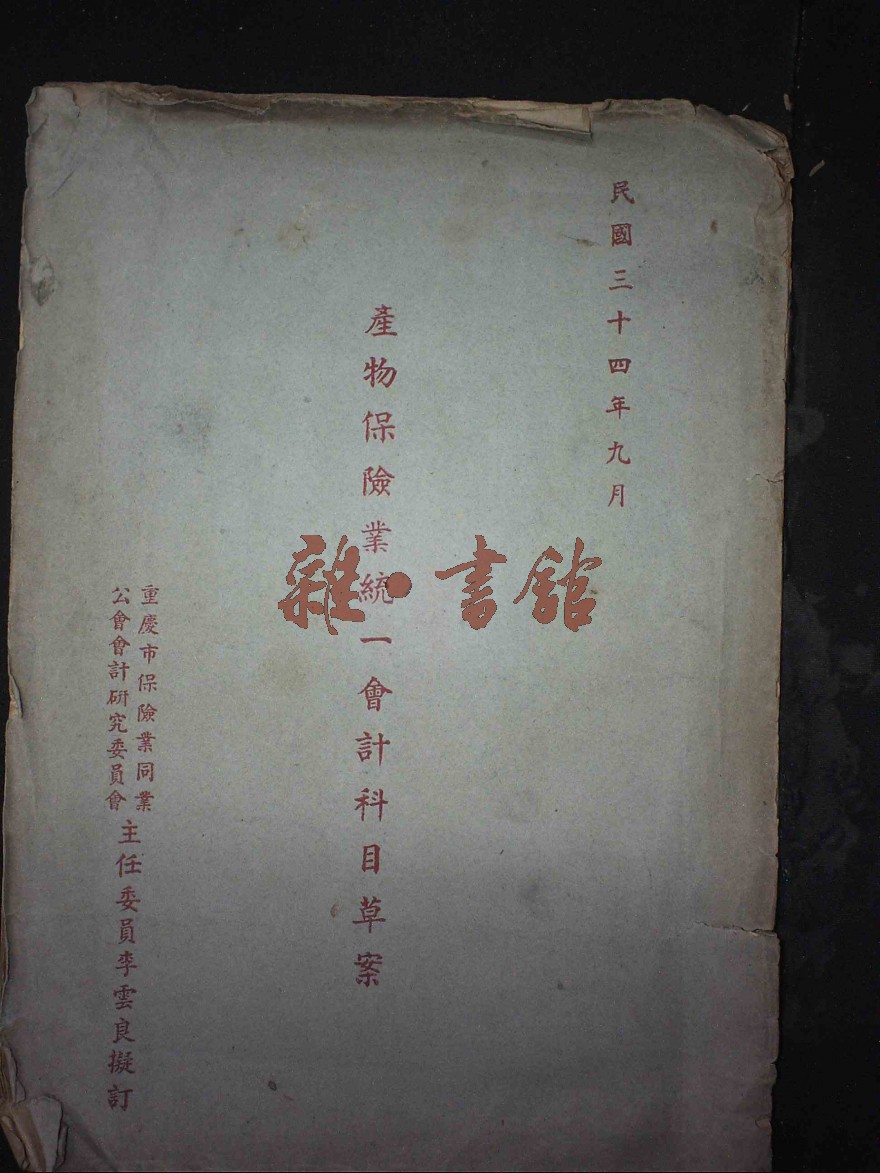 民國三十四年九月
產物保險業統一會計科目草案
重慶市保險業同業
公會會計研究委員會
主任委員李雲良擬訂
雜·書館